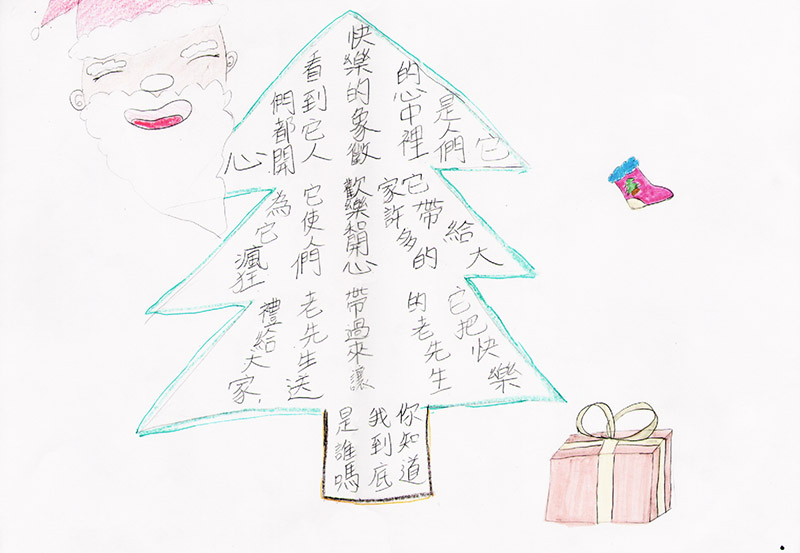 它
是人們
的心中裡
快樂的象徵
看到它人
們都開
心
它帶給大
家許多的
歡樂和開心
它使人們
為它瘋狂
它把快樂
的老先生
帶過來讓
老先生送
禮給大家,
你知道
我到底
是誰嗎